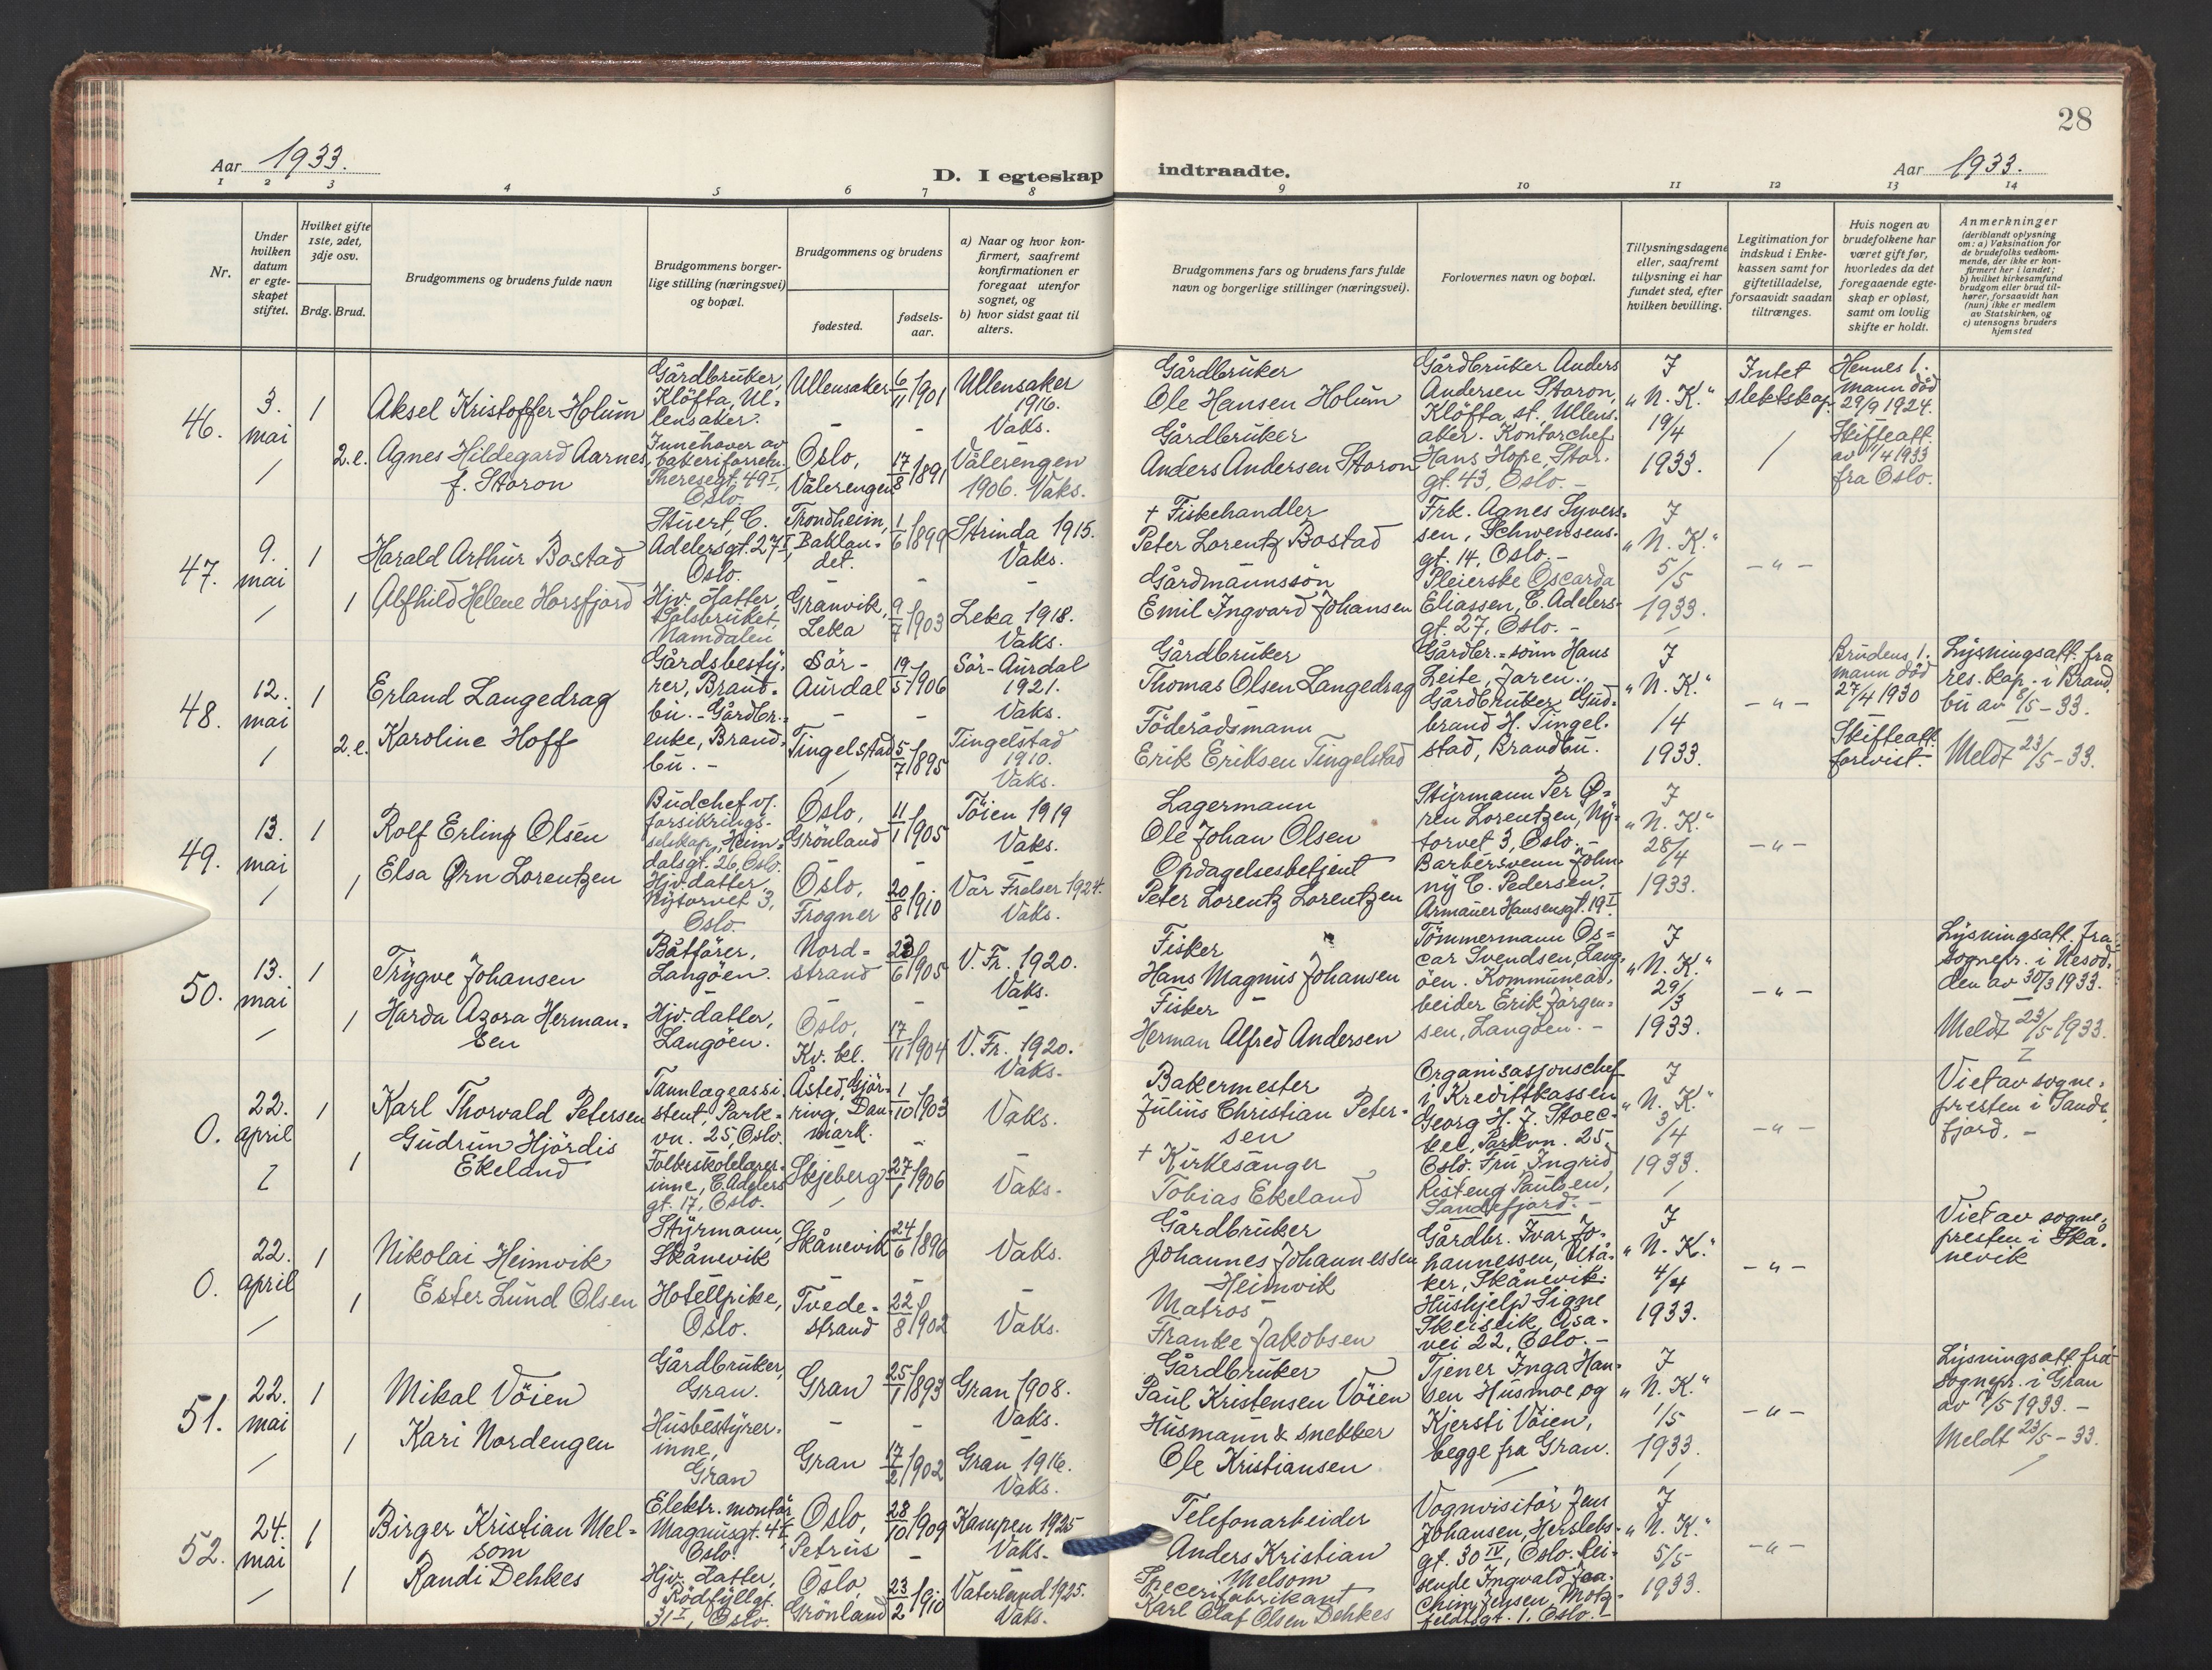 28
Aar 1933.
D. I egteskap indtraadte.
Aar 1933.
1 2 3 4 5 6 7 8 9 10 11 12 13 14
Nr.
Under hvilken datum er egteskapet stiftet.
Hvilket gifte 1ste, 2det, 3dje osv.
Brdg. Brud.
Brudgommens og brudens fulde navn
Brudgommens borgerlige stilling (næringsvei) og bopæl.
Brudgommens og brudens
fødested.
fødselsaar.
a) Naar og hvor konfirmert, saafremt konfirmationen er foregaat utenfor sognet, og
b) hvor sidst gaat til alters.
Brudgommens fars og brudens fars fulde navn og borgerlige stillinger (næringsvei).
Forlovernes navn og bopæl.
Tillysningsdagene eller, saafremt tillysning ei har fundet sted, efter hvilken bevilling.
Legitimation for indskud i Enkekassen samt for giftetilladelse, forsaavidt saadan tiltrænges.
Hvis nogen av brudefolkene har været gift før, hvorledes da det foregaaende egteskap er opløst, samt om lovlig skifte er holdt.
Anmerkninger
(deriblandt oplysning om: a) Vaksination for de brudefolks vedkommende, der ikke er konfirmert her i landet;
b) hvilket kirkesamfund brudgom eller brud tilhører, forsaavidt han (hun) ikke er medlem av Statskirken, og
c) utensogns bruders hjemsted
46.
3. mai
1
Aksel Kristoffer Holum
Gårdbruker, Klöfta, Ullensaker.
Ullensaker
6/11 1901
Ullensaker 1916. Vaks.
Gårdbruker
Ole Hansen Holum
Gårdbruker Anders Andersen Storon, Klöfta st. Ullensaker. Kontorchef Hans Hope, Storgt. 43, Oslo. -
I "N. K." 19/4 1933.
Intet slektskap.
Hennes 1. mann död 29/9 1924. Skifteatt. av 1/4 1933 fra Oslo.
2. e.
Agnes Hildegard Aarnes f. Storon
Innehaver av bakeriforretn. Theresegt. 49 I, Oslo.
Oslo, Vålerengen
17/8 1891
Vålerengen 1906. Vaks.
Gårdbruker
Anders Andersen Storon
47.
9. mai
1
Harald Arthur Bostad
Stuert, C. Adelersgt. 27 I, Oslo.
Trondheim, Baklandet.
1/6 1899
Strinda 1915. Vaks.
+ Fiskehandler
Peter Lorentz Bostad
Frk. Agnes Syversen, Schwensensgt. 14, Oslo. - Pleierske Oscarda Eliassen, C. Adelersgt. 27, Oslo. -
I "N. K." 5/5 1933.
- " -
1
Alfhild Helene Horsfjord
Hjv. datter, Kolsbruket, Namdalen
Granvik, Leka
9/7 1903
Leka 1918. Vaks.
Gårdmannssön
Emil Ingvard Johansen
48.
12. mai
1
Erland Langedrag
Gårdsbestyrer, Brandbu. - Gårdbr.=enke, Brandbu. -
Sör-Aurdal
19/5 1906
Sör-Aurdal 1921. Vaks.
Gårdbruker
Thomas Olsen Langedrag
Gårdbr.=sönn Hans Leite, Jaren. Gårdbruker Gudbrand H. Tingelstad, Brandbu.
I "N. K." 1/4 1933.
- " -
Brudens 1. mann död 27/4 1930 Skifteatt. forevist.
Lysningsatt. fra res. kap. i Brandbu av 8/5 - 33.
Meldt 23/5 - 33.
2. e.
Karoline Hoff
Tingelstad
5/7 1895
Tingelstad 1910. Vaks.
Föderådsmann
Erik Eriksen Tingelstad
49.
13. mai
1
Rolf Erling Olsen
Budchef v/ forsikringsselskap, Heimdalsgt. 26, Oslo.
Oslo, Grönland
11/1 1905
Töien 1919 Vaks.
Lagermann
Ole Johan Olsen
Styrmann Per Ørn Lorentzen, Nytorvet 3, Oslo. - Barbersvenn Johnny C. Pedersen, Armauer Hansensgt. 19 I.
I "N. K." 28/4 1933.
- " -
1
Elsa Ørn Lorentzen
Hjv. datter, Nytorvet 3, Oslo.
Oslo, Frogner
20/8 1910
Vår Frelser 1924. Vaks.
Opdagelsesbetjent
Peter Lorentz Lorentzen
50.
13. mai
1
Trygve Johansen
Båtförer, Langöen.
Nordstrand
23/6 1905
V. Fr. 1920. Vaks.
Fisker
Hans Magnus Johansen
Tömmermann Oscar Svendsen, Langöen. Kommunearbeider Erik Jörgensen, Langöen. -
I "N. K." 29/3 1933.
- " -
Lysningsatt. fra sognepr. i Nesodden av 30/3 1933.
Meldt 23/5 1933.
1
Harda Azora Hermansen
Hjv. datter, Langöen.
Oslo, Kv. bel.
17/11 1904
V. Fr. 1920. Vaks.
Fisker
Herman Alfred Andersen
0.
22. april
1
Karl Thorvald Petersen
Tannlegeassistent, Parkvn. 25, Oslo.
Åsted, Hjörring, Danmark.
1/10 1903
Vaks.
Bakermester
Julius Christian Petersen
Organisasjonschef i Kredittkassen Georg H. J. Stoeckel, Parkvn. 25, Oslo. Fru Ingrid Risteng Paulsen, Sandefjord. -
I "N. K." 3/4 1933.
- " -
Viet av sognepresten i Sandefjord. -
1
Gudrun Hjördis Ekeland
Folkeskolelærerinne, C. Adelersgt. 17, Oslo.
Skjeberg
27/1 1906
Vaks.
+ Kirkesanger
Tobias Ekeland
0.
22. april
1
Nikolai Heimvik
Styrmann, Skånevik
Skånevik
24/6 1896
Vaks.
Gårdbruker
Johannes Johannessen Heimvik
Gårdbr. Ivar Johannessen, Utåker, Skånevik. Hushjelp Signe Skeiseik, Åsavei 22, Oslo. -
I "N. K." 4/4 1933.
- " -
Viet av sognepresten i Skånevik
1
Ester Lund Olsen
Hotellpike, Oslo.
Tvedestrand
22/8 1902
Vaks.
Matros
Franke Jakobsen
51.
22. mai
1
Mikal Vöien
Gårdbruker, Gran.
Gran
25/1 1893
Gran 1908. Vaks.
Gårdbruker
Paul Kristensen Vöien
Tjener Inga Hansen Husmoe og Kjersti Vöien, begge fra Gran.
I "N. K." 1/5 1933.
- " -
Lysningsatt. fra sognepr. i Gran av 7/5 1933. -
Meldt 23/5 - 33.
1
Kari Nordengen
Husbestyrerinne, Gran
Gran
17/2 1902
Gran 1916. Vaks.
Husmann & snekker
Ole Kristiansen
52.
24. mai
1
Birger Kristian Melsom
Elektr. montör Magnusgt. 4 I, Oslo.
Oslo, Petrus
28/10 1909
Kampen 1925 Vaks.
Telefonarbeider
Anders Kristian Melsom
Vognvisitör Jens Johansen, Herslebsgt. 30 IV, Oslo. Reisende Ingvald Joachim Jensen, Motzfeldtsgt. 1, Oslo.
I "N. K." 5/5 1933.
- " -
1
Randi Dehkes
Hjv. datter, Rödfyllgt. 31 I, Oslo.
Oslo, Grönland
23/2 1910
Vaterland 1925. Vaks.
Specerifabrikant
Karl Olaf Olsen Dehkes